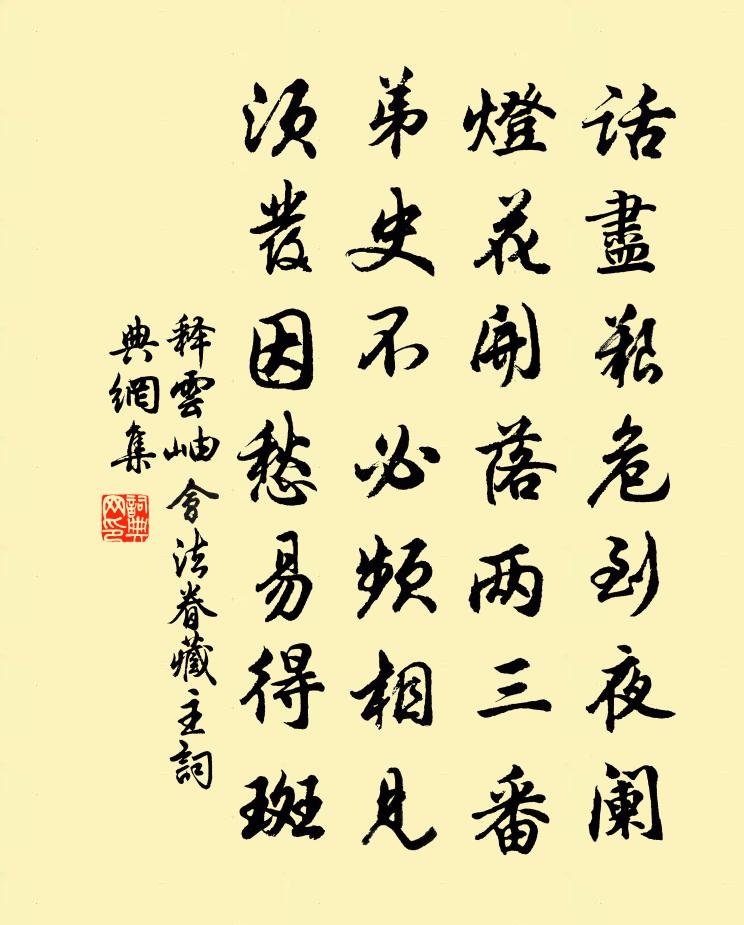 話盡艱危到夜阑
燈花開落两三番
弟史不必頻相見
須發因愁易得斑
释雲岫會法眷藏主詞
典網集
詞典
网印